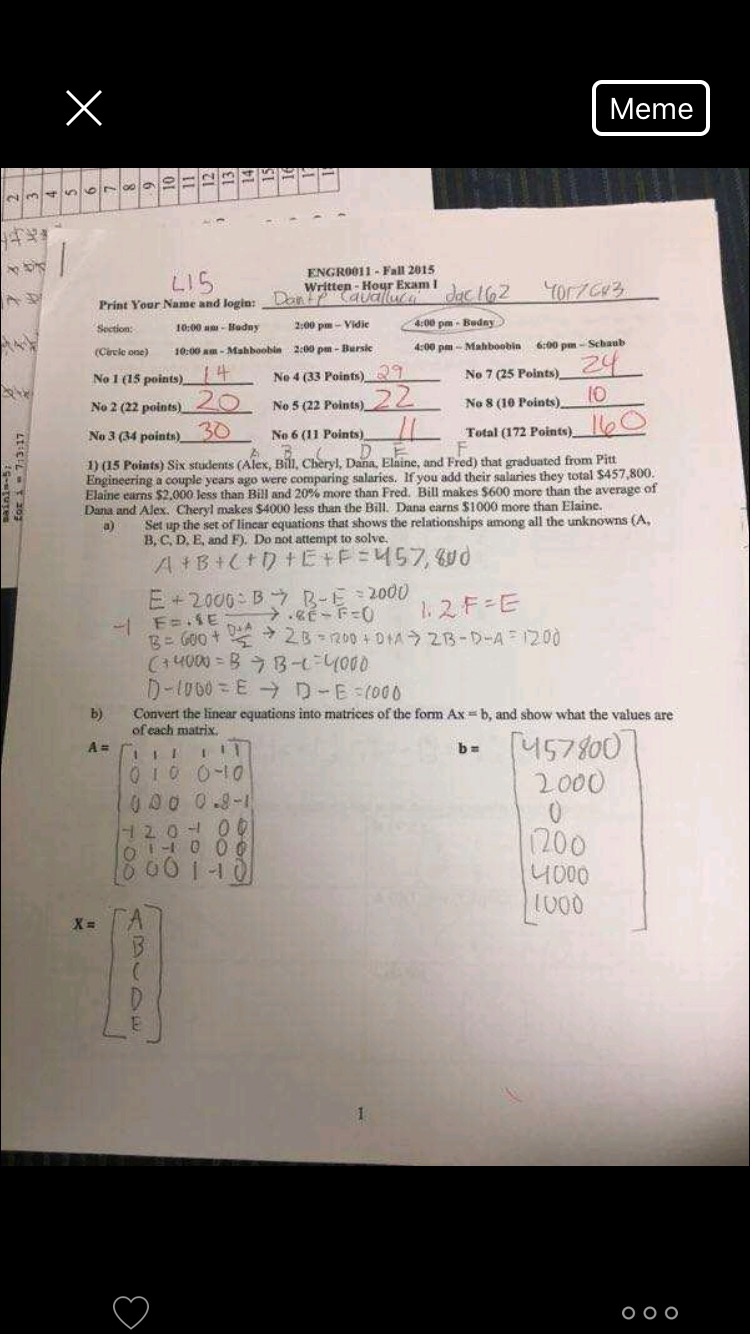 Meme
2 3 4 5 6 7 8 9 10 11 12 13 14 15
main1-5:
for i = 7:3:17
ENGR0011 - Fall 2015
L15
Written - Hour Exam I
Print Your Name and login: Dante Cavallucci dac162
Section: 10:00 am - Budny 2:00 pm - Vidic 4:00 pm - Budny
(Circle one) 10:00 am - Mahboobin 2:00 pm - Bursic 4:00 pm - Mahboobin 6:00 pm - Schaub
No 1 (15 points) 14 No 4 (33 Points) 29 No 7 (25 Points) 24
No 2 (22 points) 20 No 5 (22 Points) 22 No 8 (10 Points) 10
No 3 (34 points) 30 No 6 (11 Points) 11 Total (172 Points) 160
A B C D E F
1) (15 Points) Six students (Alex, Bill, Cheryl, Dana, Elaine, and Fred) that graduated from Pitt
Engineering a couple years ago were comparing salaries. If you add their salaries they total $457,800.
Elaine earns $2,000 less than Bill and 20% more than Fred. Bill makes $600 more than the average of
Dana and Alex. Cheryl makes $4000 less than the Bill. Dana earns $1000 more than Elaine.
a) Set up the set of linear equations that shows the relationships among all the unknowns (A,
B, C, D, E, and F). Do not attempt to solve.
A + B + C + D + E + F = 457,800
E + 2000 = B → B - E = 2000
1.2F = E
-1 F = .8E → .8E - F = 0
B = 600 + D+A/2 → 2B = 1200 + D + A → 2B - D - A = 1200
C + 4000 = B → B - C = 4000
D - 1000 = E → D - E = 1000
b) Convert the linear equations into matrices of the form Ax = b, and show what the values are
of each matrix.
A = b =
1 1 1 1 1 1 457800
0 1 0 0 -1 0 2000
0 0 0 0 .8 -1 0
-1 2 0 -1 0 0 1200
0 1 -1 0 0 0 4000
0 0 0 1 -1 0 1000
X = A
B
C
D
E
1